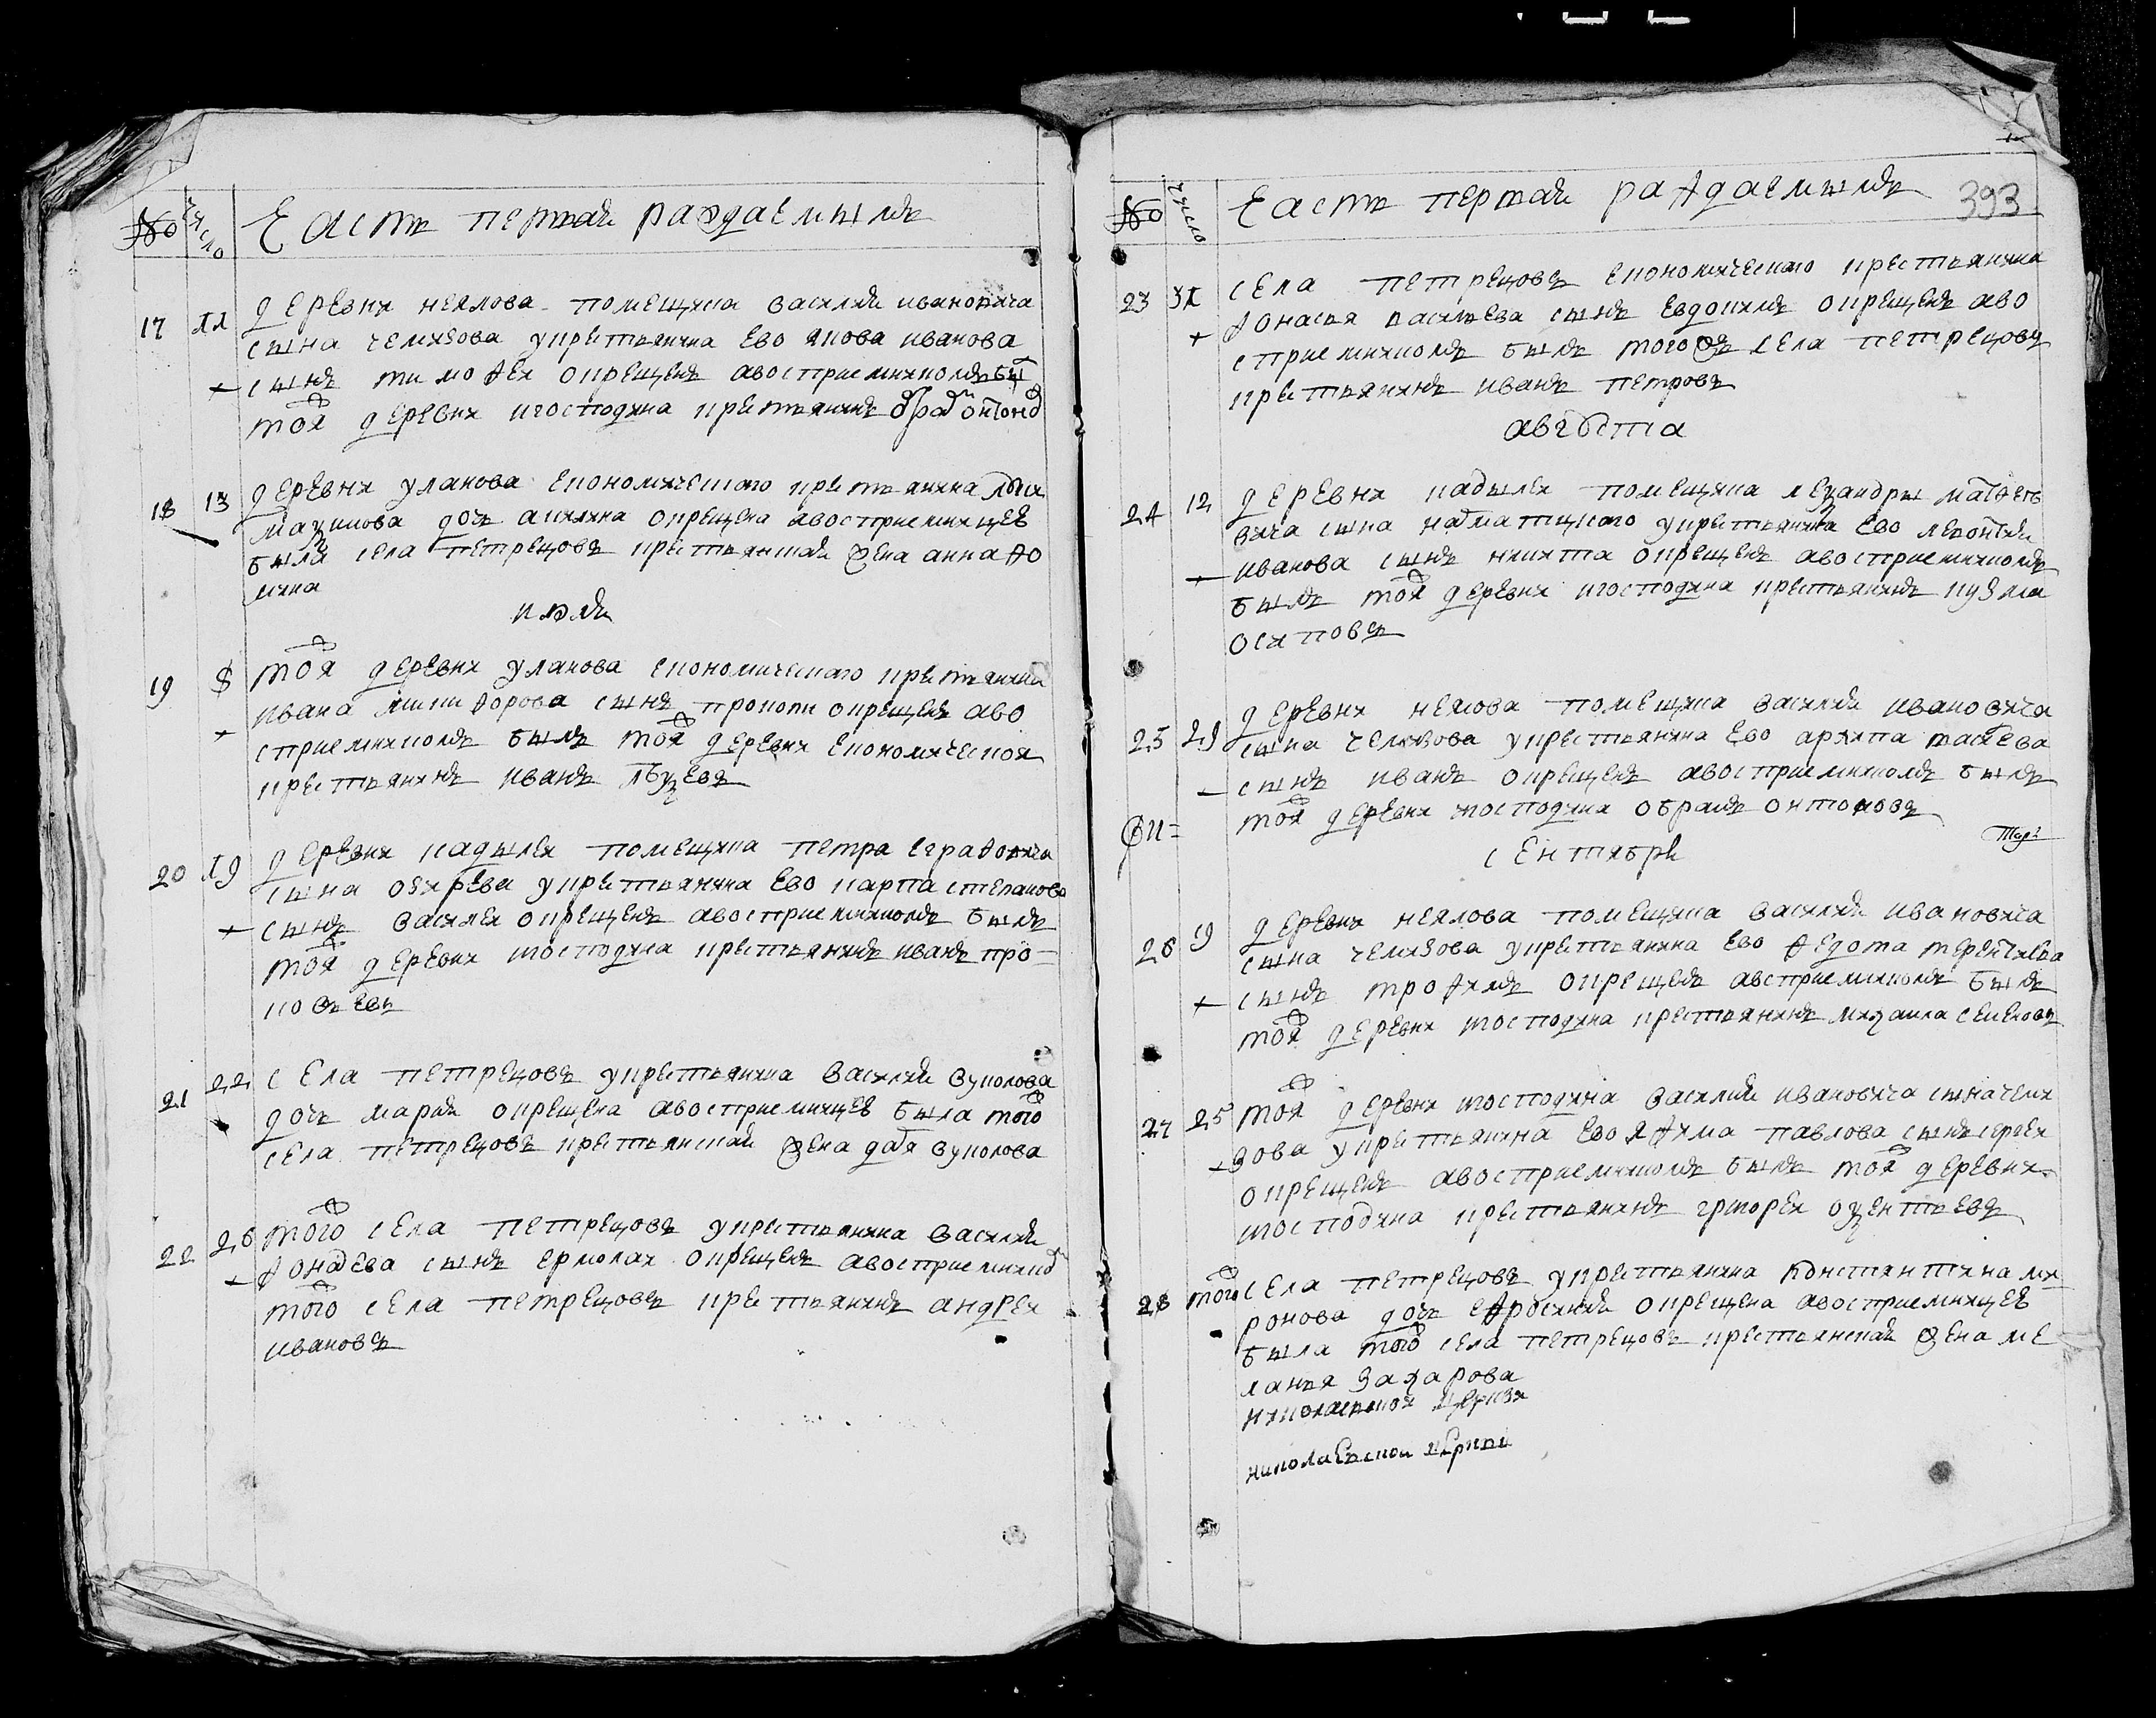 № число Часть первая раждаемымъ
17 11 деревни неклова помещика василья ивановича
сына челизова у крестьянина ево якова иванова
сынъ тимофеи окрещенъ а восприемникомъ бы
тоя деревни и господина крестьянинъ
18 13 деревни уланова економического крестьянина
дочь акилина окрещена а восприемницею
была села петрецовъ крестьянская жена анна фо
мина
июля
19 8 тоя ж деревни уланова економического крестьянина
ивана никифорова сынъ прокопи окрещенъ а во
сприемникомъ былъ тоя ж деревни економическои
крестьянинъ иванъ
20 19 деревни кадылеи помещика петра
сына озярева у крестьянина ево карпа степанова
сынъ василеи окрещенъ а восприемникомъ былъ
тоя ж деревни и господина крестьянинъ иванъ про=
кофьевъ
21 22 села петрецовъ у крестьянина василья вуколова
дочь марья окрещена а восприемницею была того ж
села петрецовъ крестьянская жена дарья вуколова
22 26 того ж села петрецовъ у крестьянина василья
сынъ ермолаи окрещенъ а восприемником
того ж села петрецовъ крестьянинъ андреи
ивановъ
№ число Часть первая рафдаемымъ 393
23 31 села петрецовъ економического крестьянина
афонасья васильева сынъ евдокимъ окрещенъ а во
сприемникомъ былъ того ж села петрецовъ
крестьянинъ иванъ петровъ
августа
24 12 деревни кадылеи помещика
вича сына у крестьянина ево леонтья
иванова сынъ никита окрещенъ а восприемникомъ
былъ тоя ж деревни и господина крестьянинъ кузма
осиповъ
25 29 деревни неклова помещика василья ивановича
сына челизова у крестьянина ево архипа
сынъ иванъ окрещенъ а восприемникомъ былъ
тоя ж деревни и господина обрамъ онтоновъ
сентября
26 9 деревни неклова помещика василья ивановича
сына челизова у крестьянина ево федота терентиева
сынъ трофимъ окрещенъ а восприемникомъ былъ
тоя ж деревни и господина крестьянинъ михаила семеновъ
27 25 тоя ж деревни и господина василья ивановича сына чели
зова у крестьянина ево яфима павлова сынъ сергеи
окрещенъ а восприемникомъ былъ тоя ж деревни
и господина крестьянинъ григореи
28 того ж села петрецовъ у крестьянина константина ми
ронова дочь ефросинья окрещена а восприемницею
была того ж села петрецовъ крестьянская жена ме
ланья захарова
николаевскои церкви
николаевскои церкви